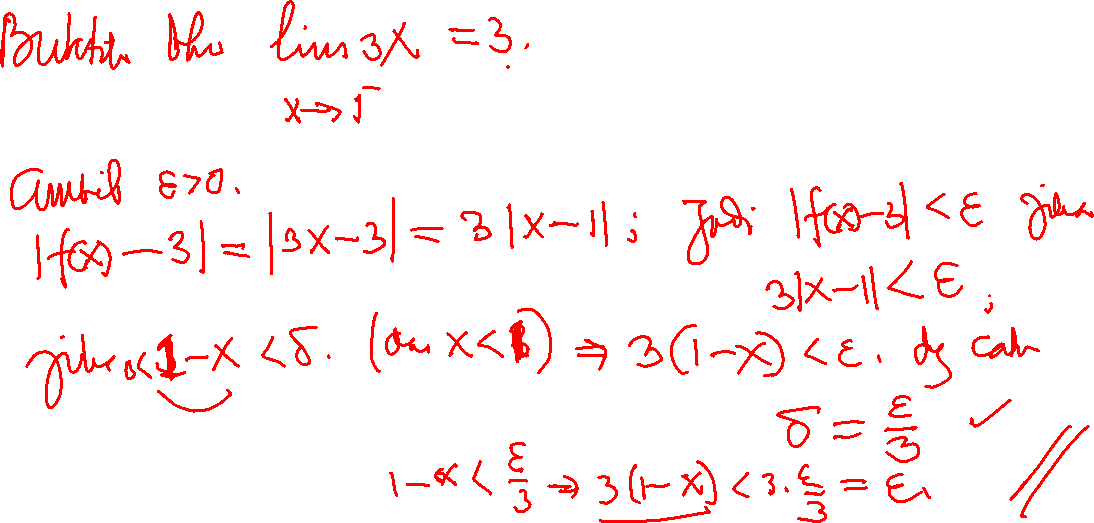 Buktikan bhw lim 3x = 3.
x→1⁻
Ambil ε>0.
|f(x)-3| = |3x-3| = 3|x-1| ; Jadi |f(x)-3| < ε jika
3|x-1| < ε ;
jika 0<1-x < δ. (dan x<1) ⇒ 3(1-x) < ε. dg
δ = ε/3 ✓
1-x < ε/3 → 3(1-x) < 3.ε/3 = ε. //